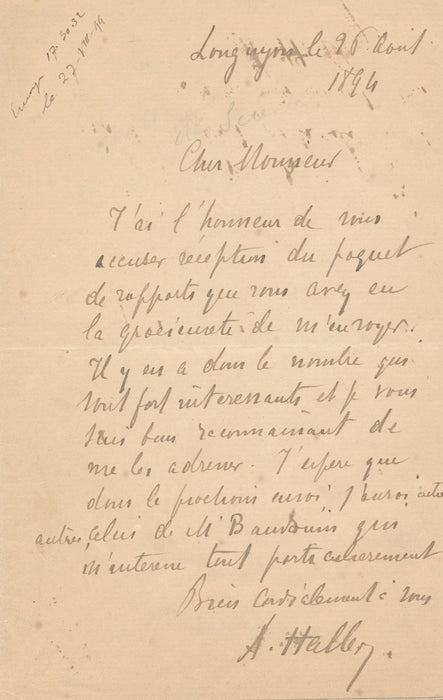 17.30.32
le 27-VIII-94
Longuyon le 26 Aout
1894
Cher Monsieur
J'ai l'honneur de vous
accuser réception du paquet
de rapports que vous avez eu
la gracieuseté de m'envoyer.
Il y en a dans le nombre qui
sont fort interessants et je vous
suis bien reconnaissant de
me les adresser. J'espere que
dans le prochain envoi j'aurai entre
autres, celui de Mr Baudouin qui
m'interesse tout particulierement
Bien cordialement à vous
A. Hallez.